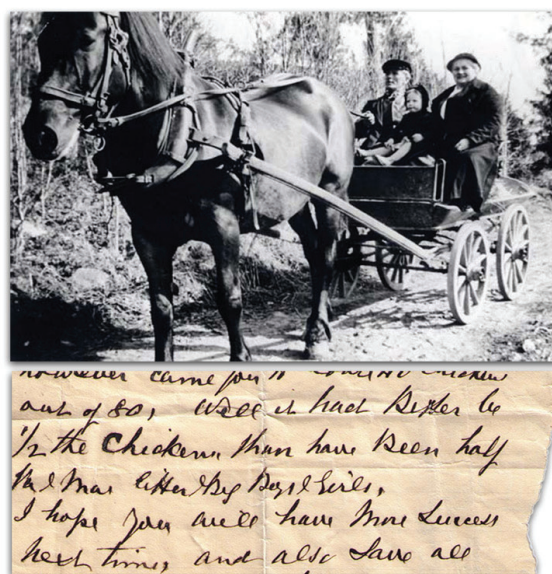 however came you to chickens
out of 80, Well it had Better be
1/2 the Chickens than have Been half
Big Boys & Girls,
I hope you will have More Success
next time, and also Save all